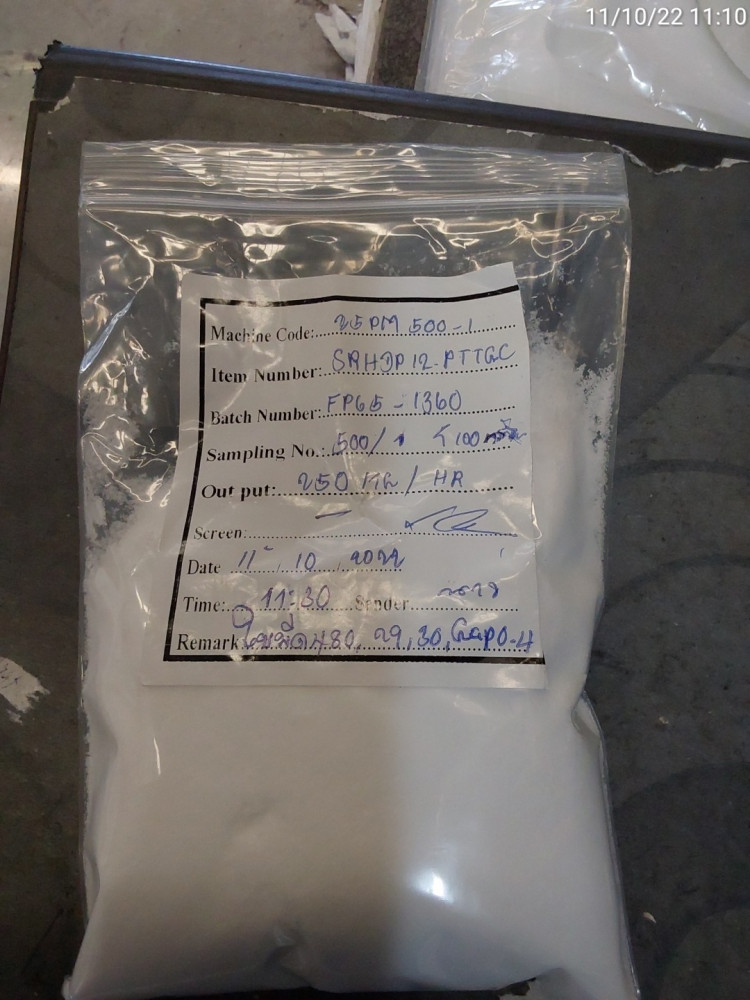 11/10/22 11:10
Machine Code: 25PM 500-1
Item Number: SRHDP12-PTTGC
Batch Number: FP65-1360
Sampling No.: 500/1 < 100
Out put: 250 KG / HR
Screen: -
Date 11 10 2022
Time: 11:30 Sender
Remark: ใบมีด 480, 29, 30, Gap 0.4